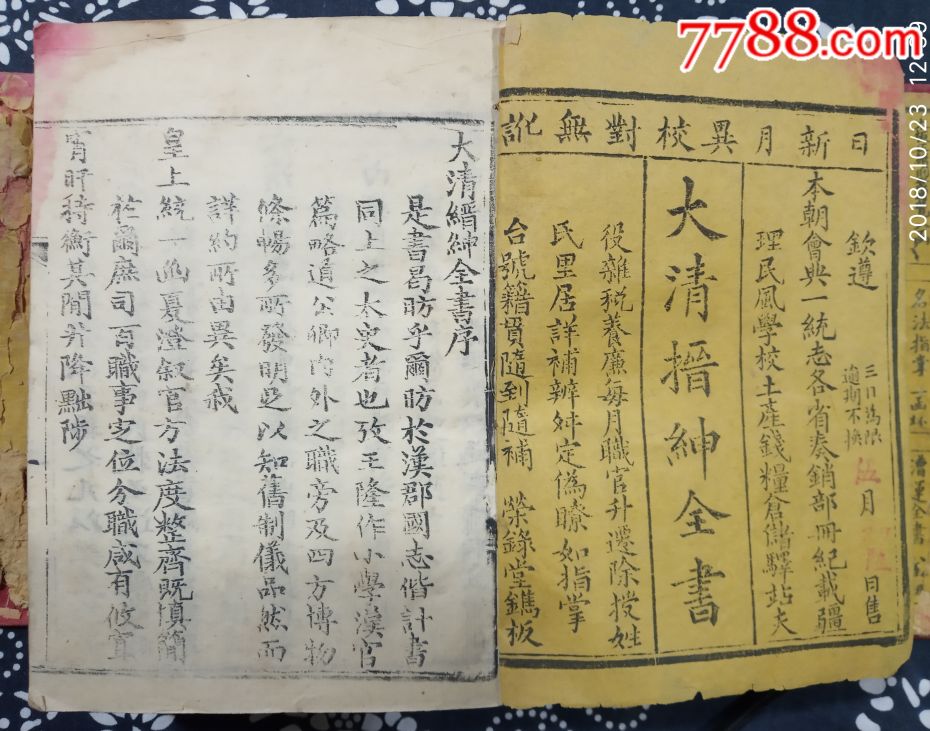 7788.com
2018/10/23 12:39
日新月異校對無訛
欽遵
本朝會典一統志各省奏銷部冊紀載疆
理民風學校土產錢糧倉儲驛站夫
三日為限
逾期不換
伍月
日售
大清搢紳全書
役雜稅養廉每月職官升遷除授姓
氏里居詳補辨舛定偽瞭如指掌
台號籍貫隨到隨補 榮錄堂鐫板
大清縉紳全書序
是書曷昉乎爾昉於漢郡國志偕計書
同上之太史者也攷王隆作小學漢官
篇略道公卿內外之職旁及四方博物
條暢多所發明足以知舊制儀品然而
詳約所由異矣我
皇上統一函夏澄敘官方法度整齊既慎簡
於爾庶司百職事定位分職咸有攸宜
宵旰持衡其間升降黜陟